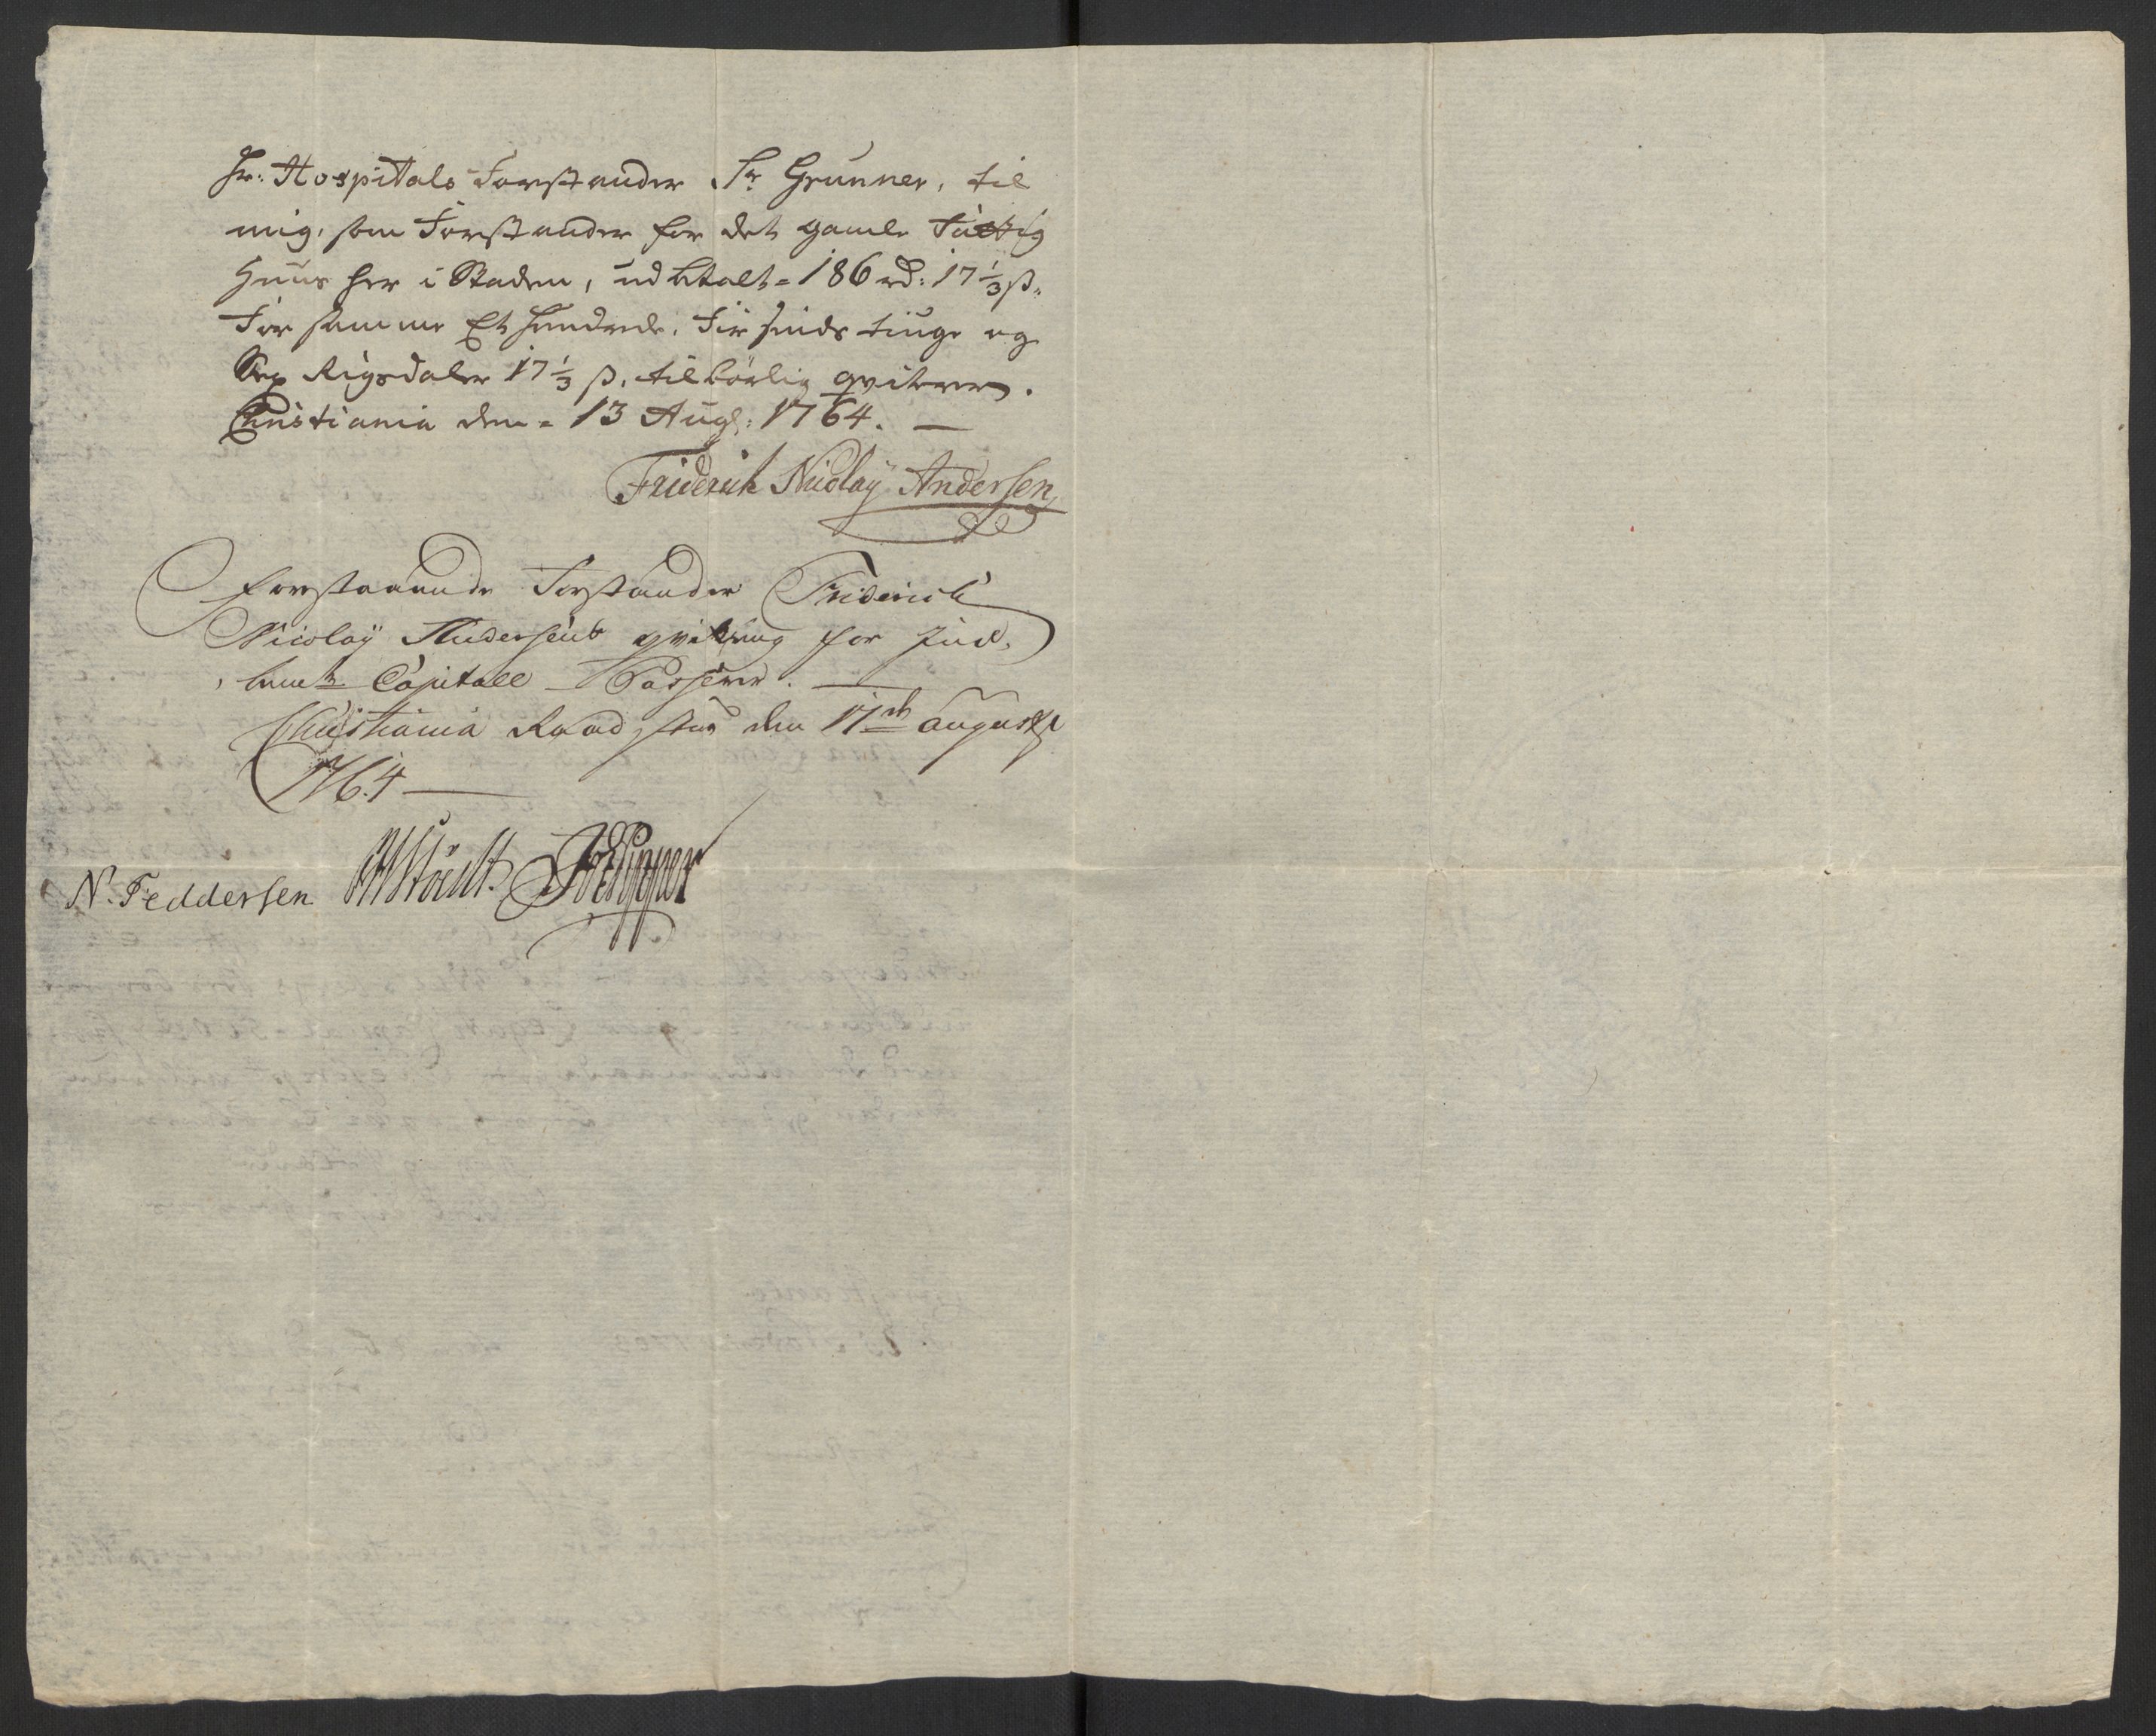 Hr: Hospitals Forstander Sr Grunner, til
mig, som Forstander for det gamle Tugt
Huus her i Staden, udbetalt = 186 rd: 17 1/3 ß.
For samme Et Hundrede, Fiir sinds tiuge og
Sex Rigsdaler 17 1/3 ß, tilbörlig qviterer.
Christiania den = 13 Aug: 1764. —
Friderich Nicolaÿ Andersen
Forstaaende Forstander Friderich
Nicolaÿ Andersens qvitering for
Capitall Passerer. —
Christiania Raadstue den 17de Augusti
1764 —
N. Feddersen